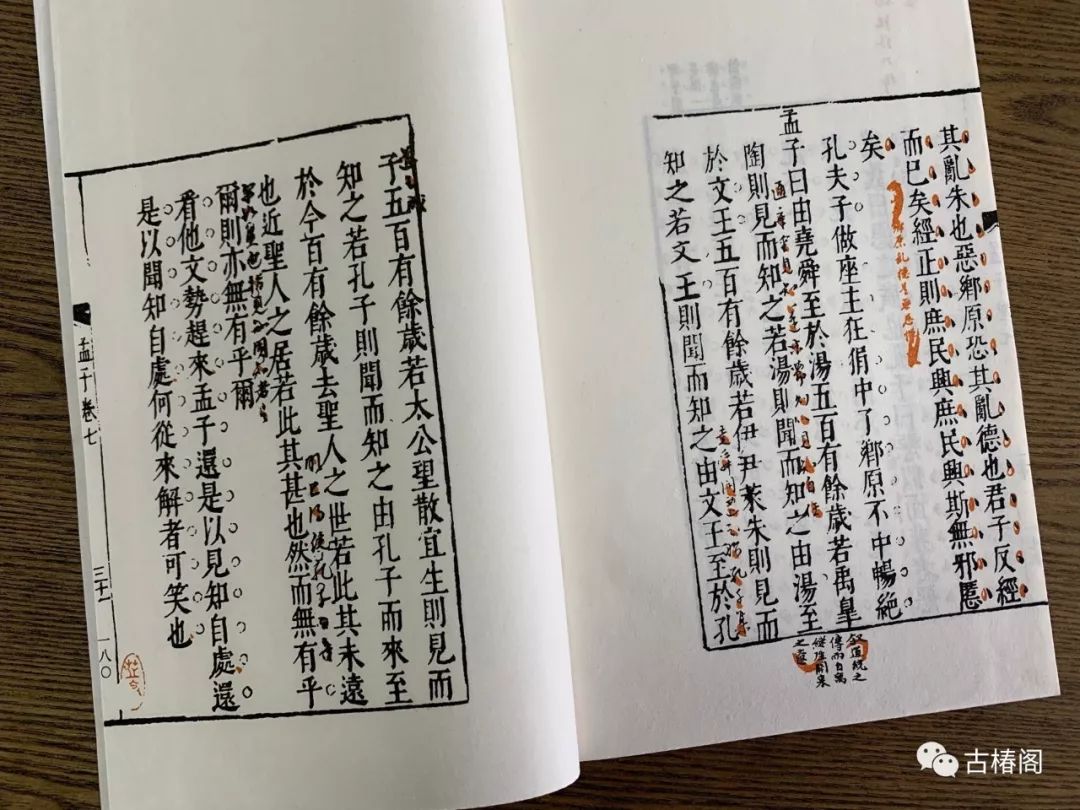 其亂朱也惡鄉原恐其亂德也君子反經
而已矣經正則庶民興庶民興斯無邪慝
矣
孔夫子做座主狂狷中了鄉原不中暢絶
孟子曰由堯舜至於湯五百有餘歲若禹臯
陶則見而知之若湯則聞而知之由湯至
於文王五百有餘歲若伊尹萊朱則見而
知之若文王則聞而知之由文王至於孔
敘道統之
傳而自寓
繼徃開來
之意
子五百有餘歲若太公望散宜生則見而
知之若孔子則聞而知之由孔子而來至
於今百有餘歲去聖人之世若此其未遠
也近聖人之居若此其甚也然而無有乎
爾則亦無有乎爾
看他文勢趕來孟子還是以見知自處還
是以聞知自處何從來解者可笑也
孟子卷七
三十一
一八〇
古椿阁